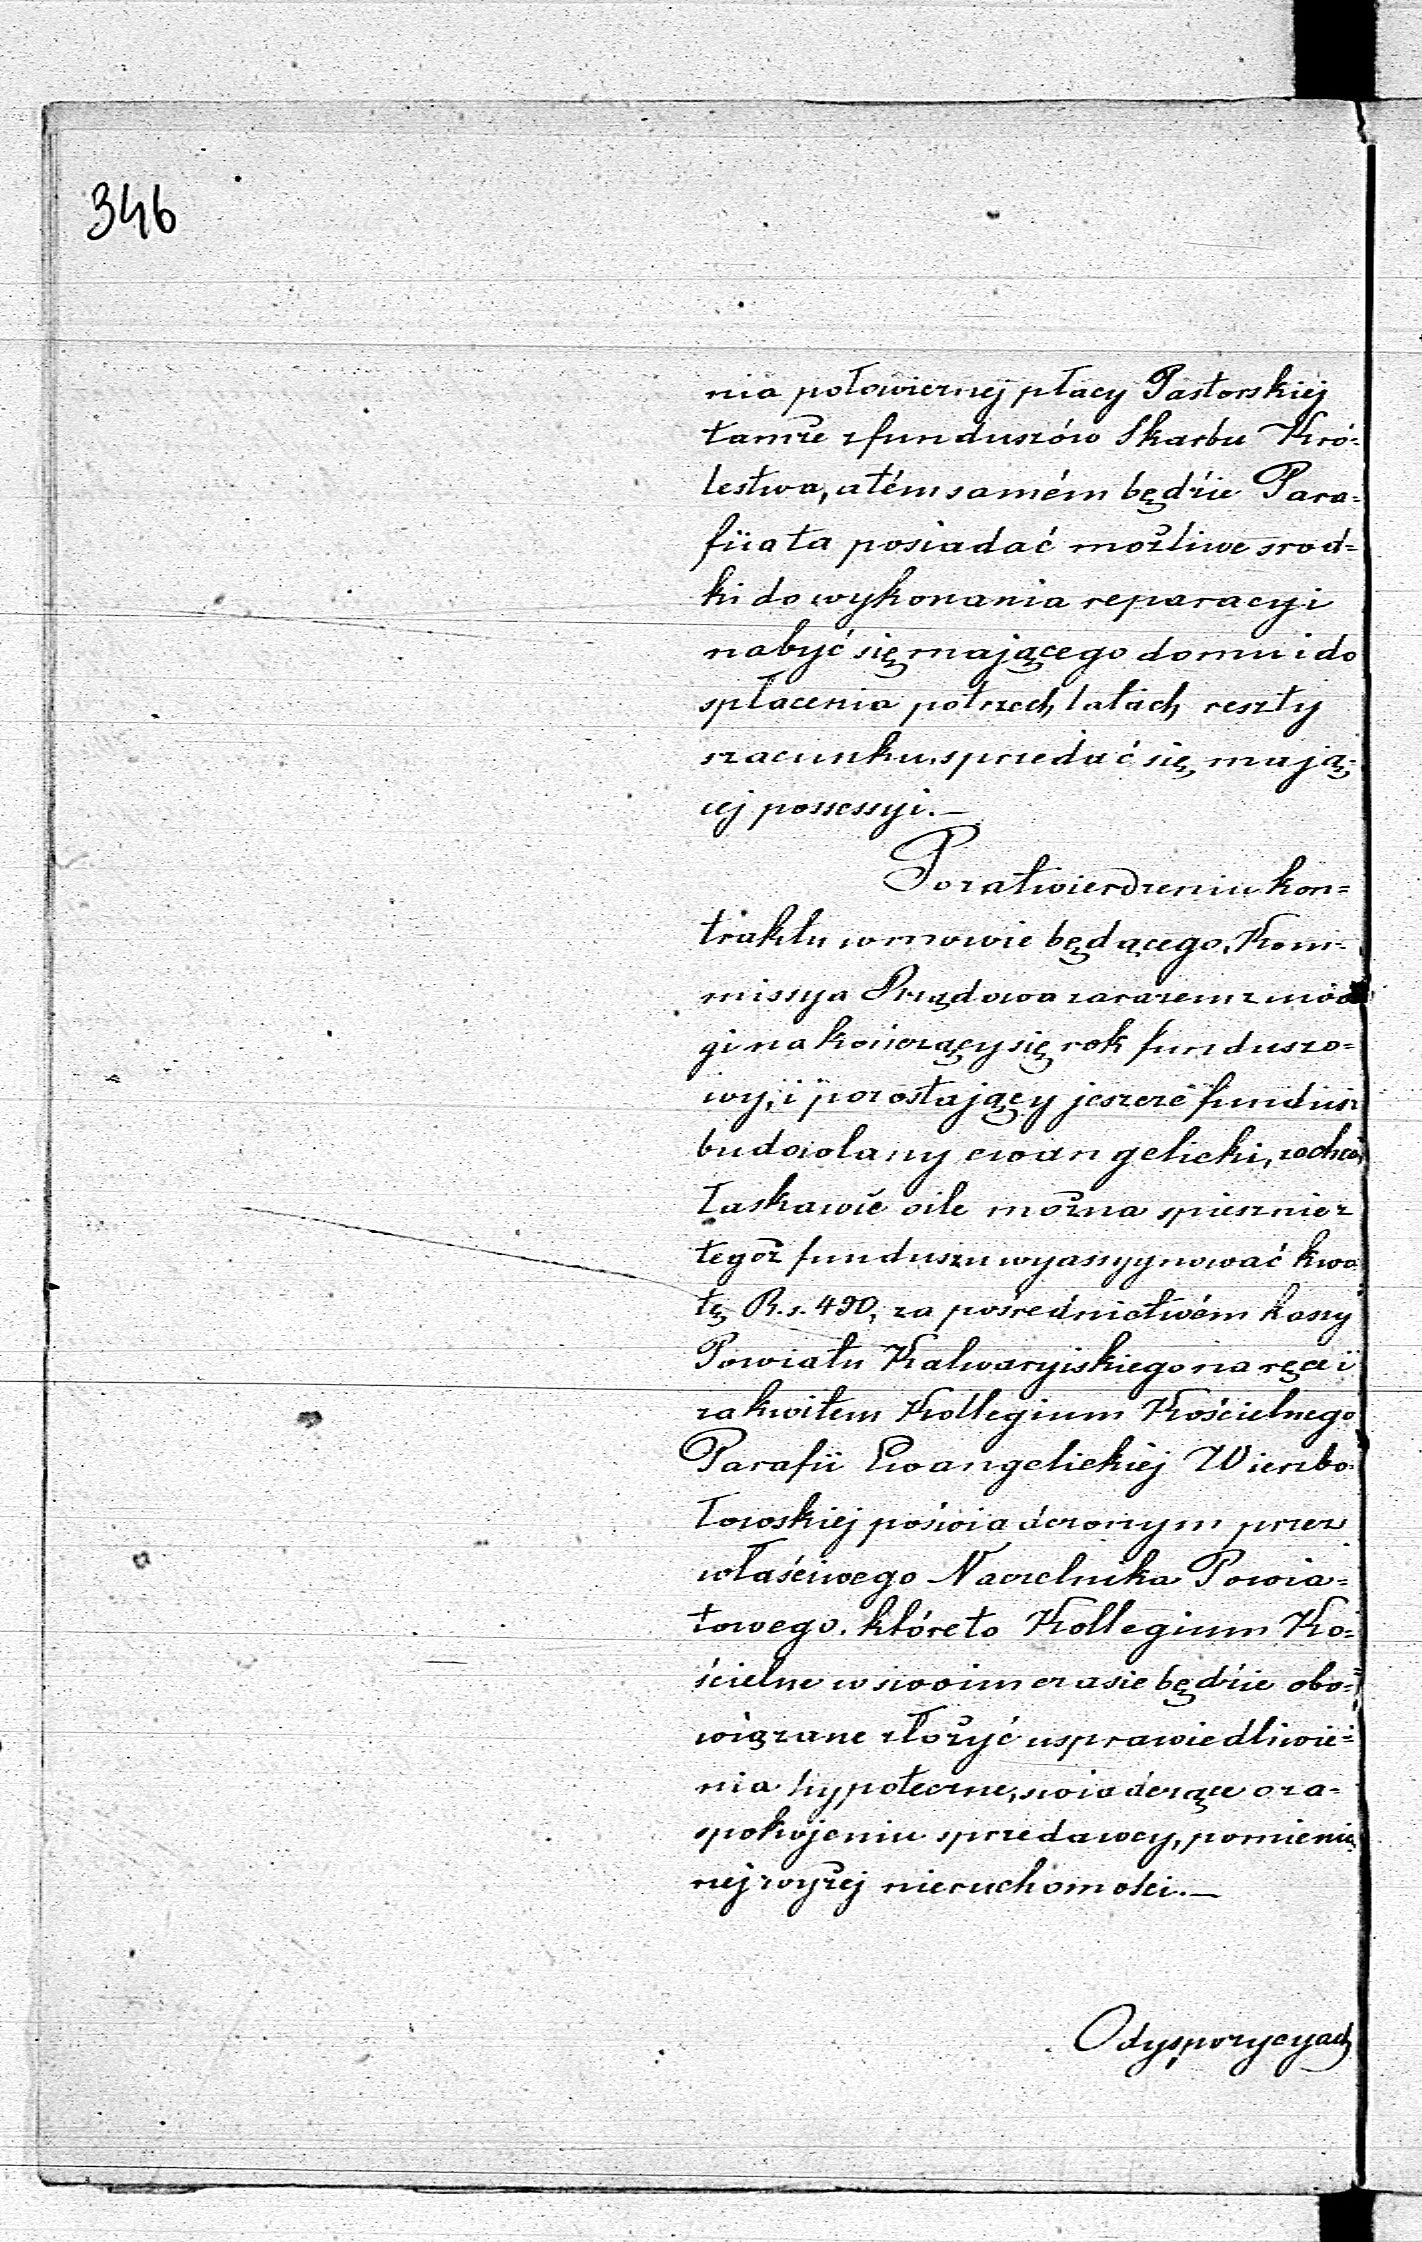 346
nia połowicznej płacy Pastorskiej
tamże z funduszów Skarbu Kró=
lestwa, a tém samém będzie Para=
fiia ta posiadać możliwe srod=
ki do wykonania reparacyi
nabyć się mającego domu i do
spłacenia po trzech latach reszty
szacunku, sprzedać się mają=
cej possessyi.—
Po zatwierdzeniu kon=
traktu w mowie będącego, Kom=
missya Rządowa zarazem z uwa
gi na kończący się rok funduszo=
wy, i pozostający jeszcze fundusz
budowlany ewangelicki, zechce
łaskawie o ile można spiesznie z
tegoż funduszu wyassygnować kwo
tę R. s. 490, za pośrednictwém kassy
Powiatu Kalwaryiskiego na ręce i
za kwitem Kollegium Kościelnego
Parafii Ewangelickiéj Wierzbo=
łowskiej poświadczonym przez
właściwego Naczelnika Powia=
towego. któreto Kollegium Ko=
ścielne w swoim czasie będzie obo=
wiązane złożyć usprawiedliwie=
nia hypoteczne, swiadczące o za=
spokojeniu sprzedawcy, pomienio
nej wyżej nieruchomości.—
O dyspozycyach